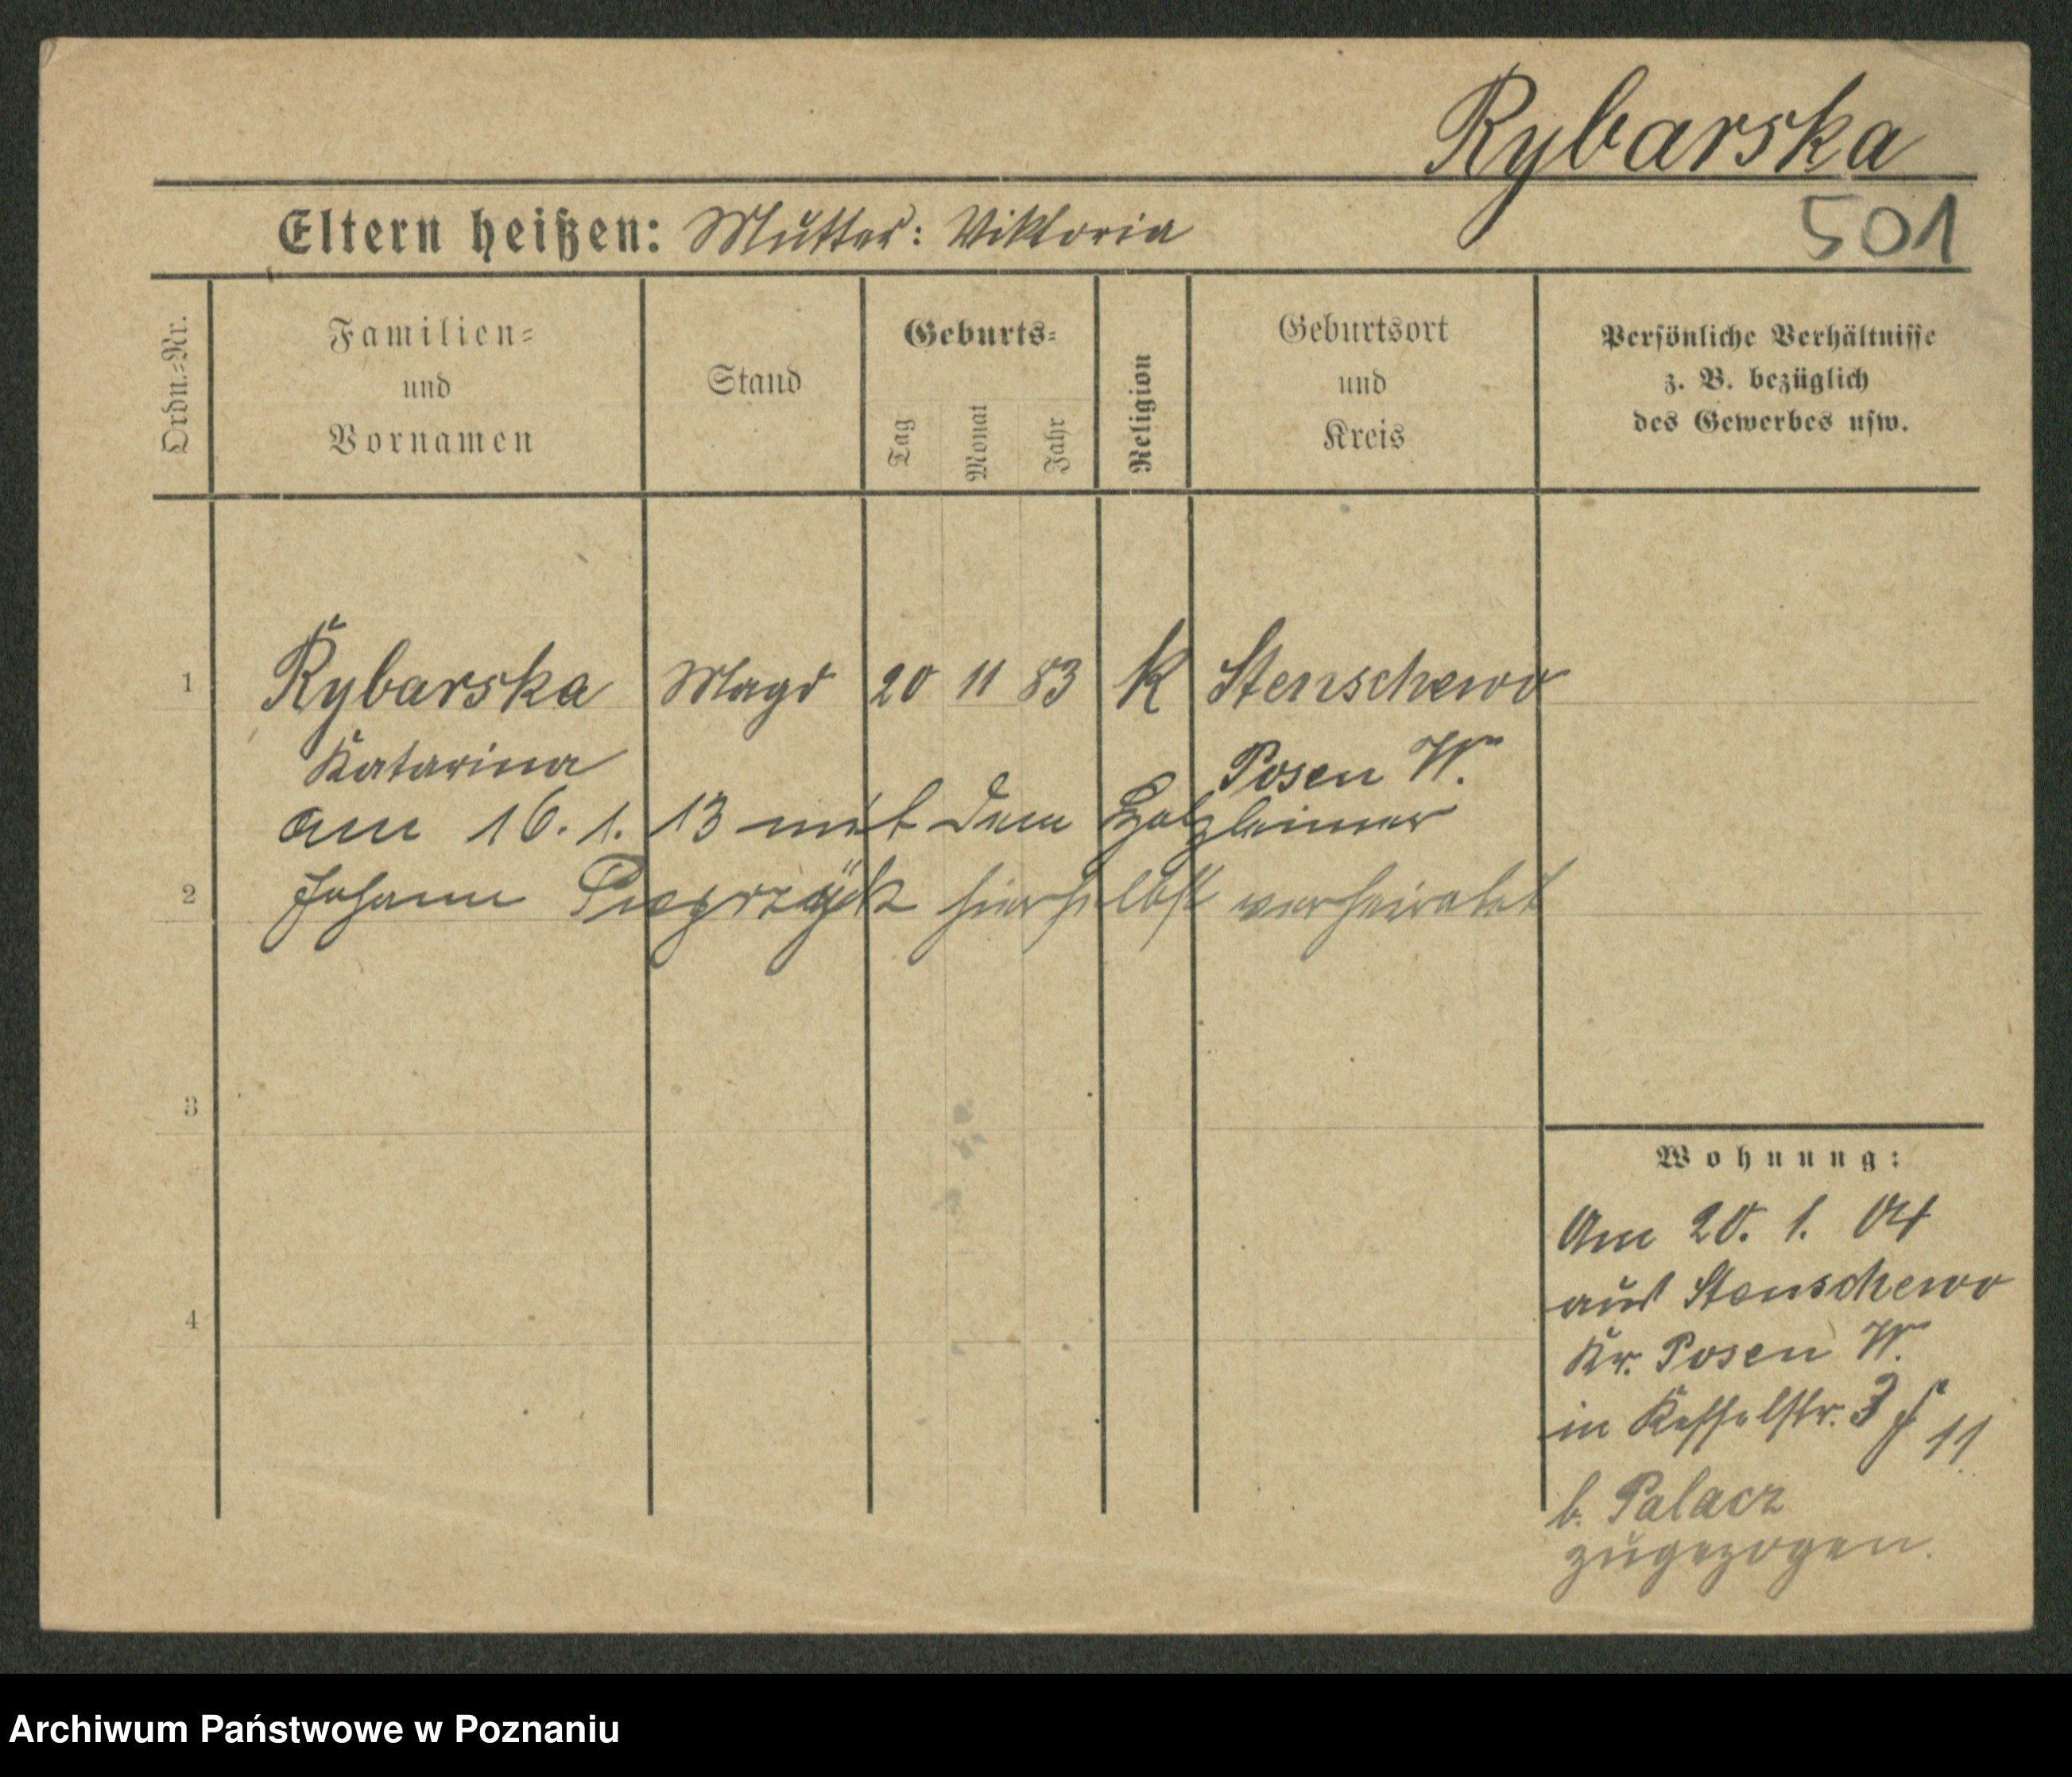 Rybarska
Eltern heißen: Mutter: Viktoria
501
Ordn.-Nr.
Familien-
und
Vornamen
Stand
Geburts-
Tag
Monat
Jahr
Religion
Geburtsort
und
Kreis
Persönliche Verhältnisse
z. B. bezüglich
des Gewerbes usw.
1 Rybarska Magd 20 11 83 K Stenschewo
Katarina Posen W.
am 16. 1. 13 mit dem
2 Johann hierselbst verheiratet
3
4
Wohnung:
Am 20. 1. 04
aus Stenschewo
Kr. Posen W.
in Kesselstr. 3 11
b. Palacz
zugezogen.
Archiwum Państwowe w Poznaniu